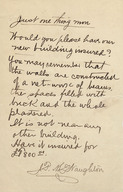 Just one thing more
Would you please have our
new building insured?
You may remember that
the walls are constructed
of a net-work of beams
the spaces filled with
brick and the whole
plastered.
It is not near any
other building.
Have it insured for
$800.00